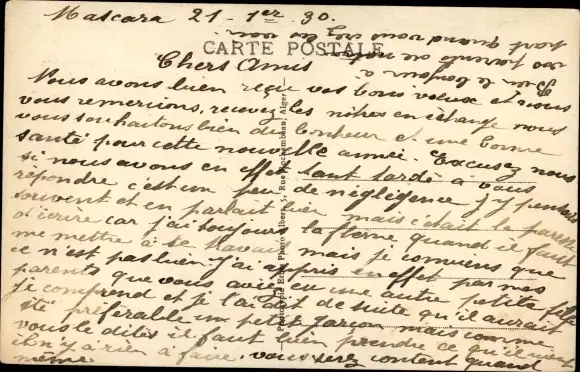 Mascara 21-1er 30.
CARTE POSTALE
Chers Amis
Nous avons bien reçu vos bons voeux et nous
vous remercions, recevez les nôtres en échange nous
vous souhaitons bien du bonheur et une bonne
santé pour cette nouvelle année. Excusez nous
si nous avons en effet tant tardé à vous
répondre c'est un peu de négligence j'y pensais
souvent et en parlait hier mais c'était la paresse
d'écrire car j'ai toujours la flême quand il faut
me mettre à ce travail mais je conviens que
ce n'est pas bien j'ai appris en effet par mes
parents que vous aviez eu une autre petite fille
je comprend et je l'ai dit de suite qu'il aurait
été préférable un petit garçon mais comme
vous le dites il faut bien prendre ce qu'il vient
il n'y a rien à faire. vous serez content quand
même
Bien le bonjour à
vos parents de notre
part quand vous
Photographie Photo Albert, 5, Rue Rochambeau, Alger